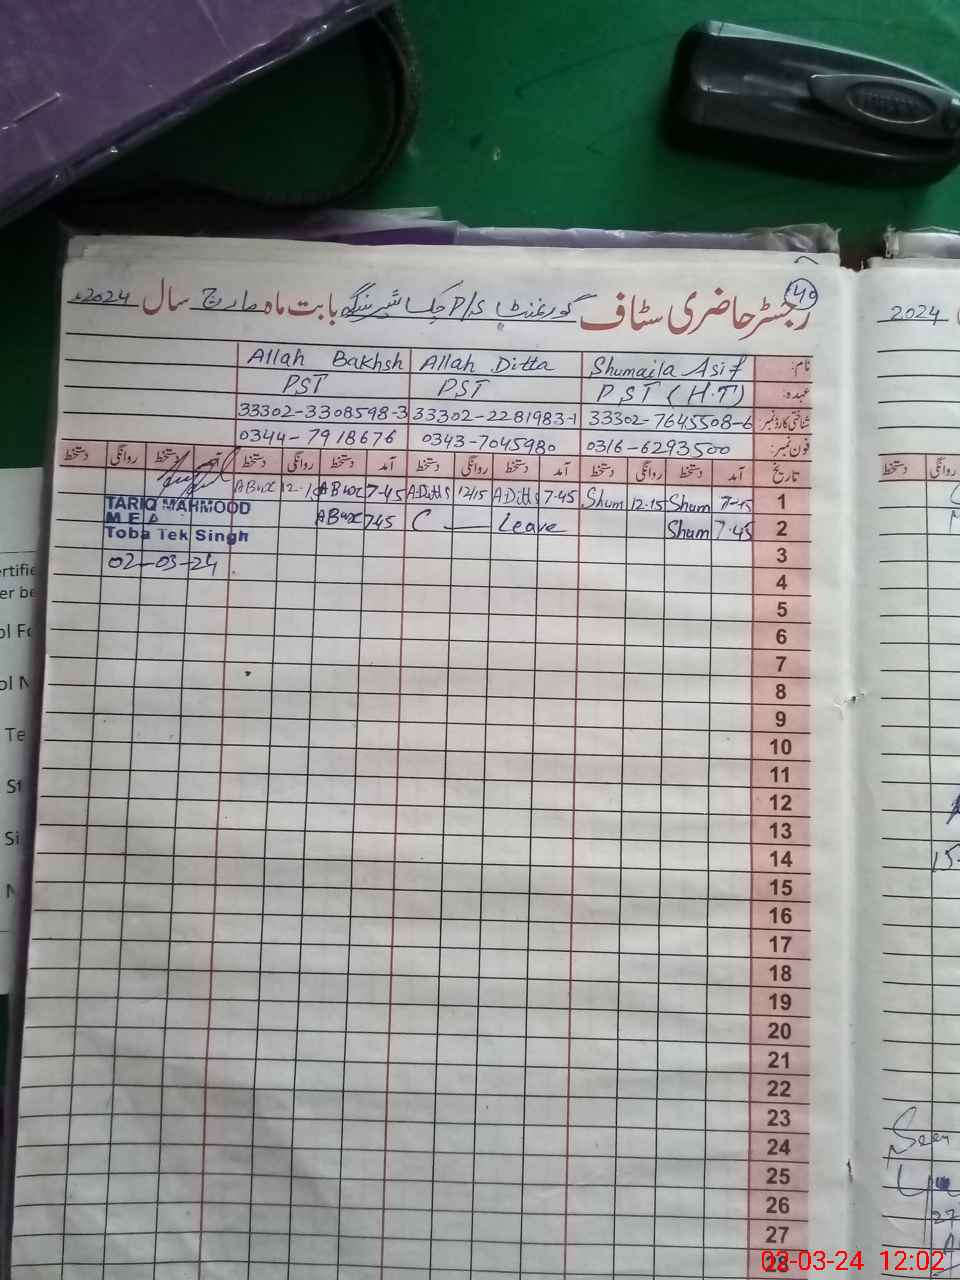 149
رجسٹر حاضری سٹاف گورنمنٹ P/S چک شیرینگ بابت ماہ مارچ سال 2024ء
نام: Shumaila Asif Allah Ditta Allah Bakhsh
عہدہ: PST (H.T) PST PST
شناختی کارڈ نمبر: 33302-7645508-6 33302-2281983-1 33302-3308598-3
فون نمبر: 0316-6293500 0343-7045980 0344-7918676
تاریخ آمد دستخط روانگی دستخط آمد دستخط روانگی دستخط آمد دستخط روانگی دستخط آمد دستخط روانگی دستخط
1 7-45 Sham 12-15 Sham 7-45 A Ditta 1215 A Ditta 7-45 ABux ABux
TARIQ MAHMOOD
2 7.45 Sham C — Leave 745 ABux
M E A
Toba Tek Singh
3
02-03-24
4
5
6
7
8
9
10
11
12
13
14
15
16
17
18
19
20
21
22
23
24
25
26
27
28
2024
دستخط روانگی
15-
Seen
27
02-03-24 12:02